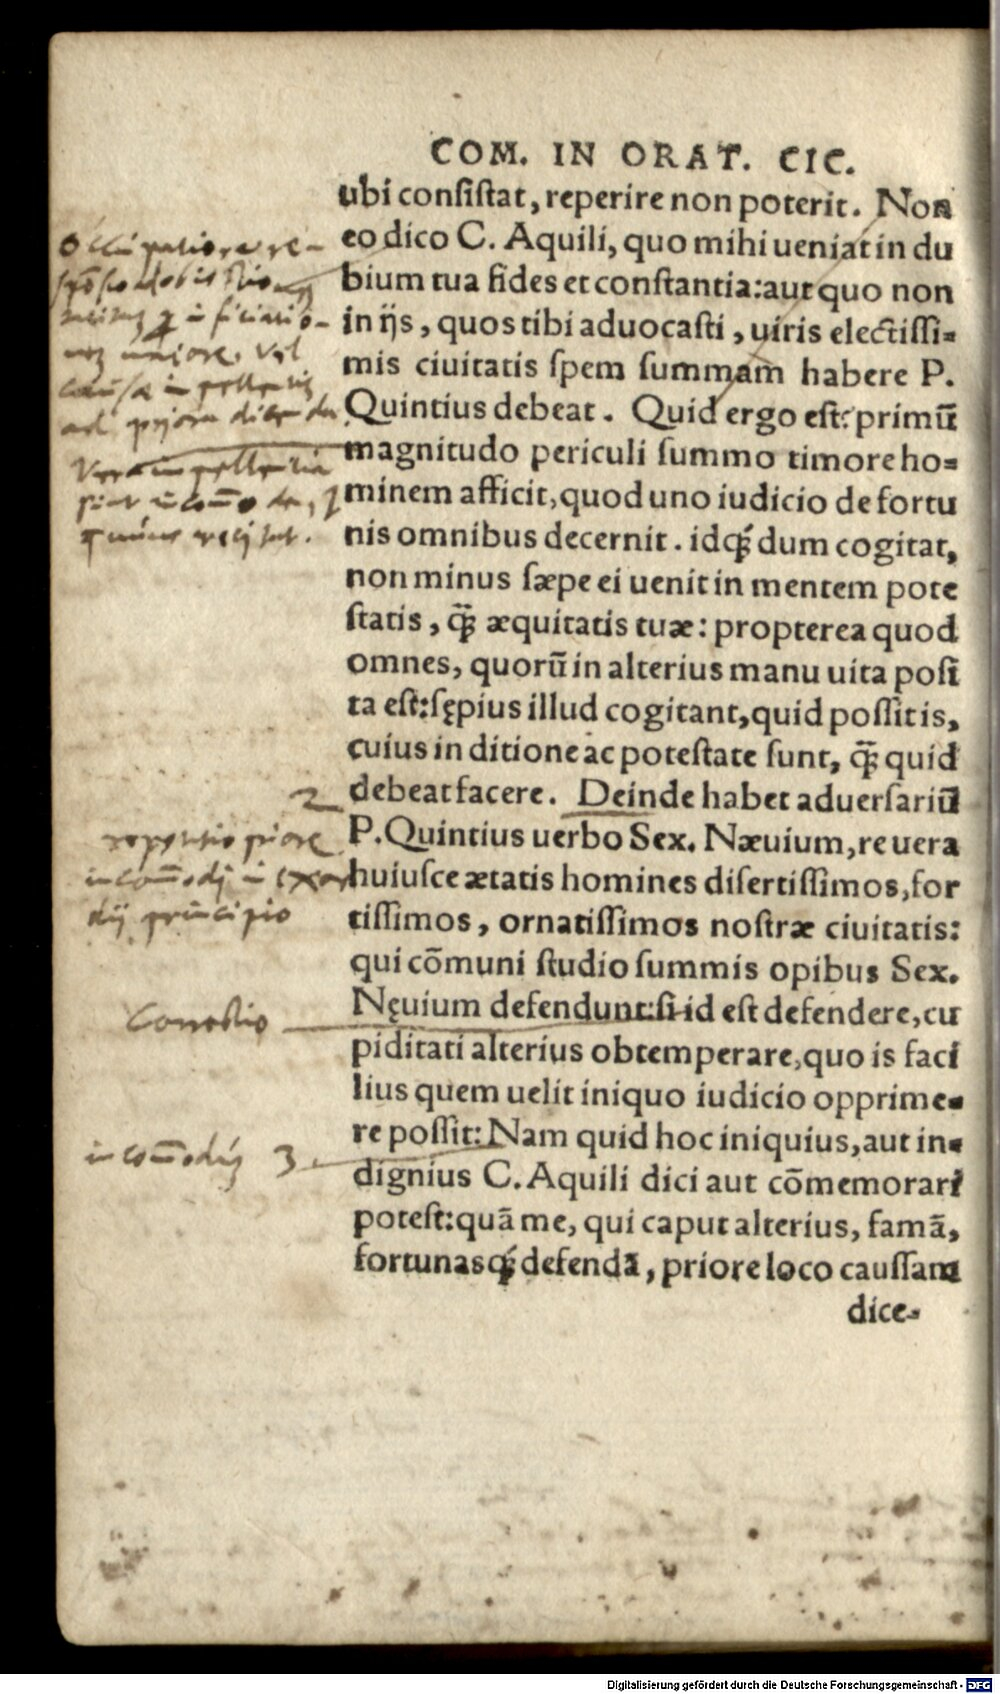 COM. IN ORAT. CIC.
ubi consistat, reperire non poterit. Non
eo dico C. Aquili, quo mihi ueniat in du
bium tua fides et constantia: aut quo non
in ijs, quos tibi aduocasti, uiris electissi-
mis ciuitatis spem summam habere P.
Quintius debeat. Quid ergo est? primū
magnitudo periculi summo timore ho-
minem afficit, quod uno iudicio de fortu
nis omnibus decernit. idq́; dum cogitat,
non minus sæpe ei uenit in mentem pote
statis, q̃; æquitatis tuæ: propterea quod
omnes, quorū in alterius manu uita posi
ta est: sępius illud cogitant, quid possit is,
cuius in ditione ac potestate sunt, q̃; quid
debeat facere. Deinde habet aduersariū
P. Quintius uerbo Sex. Næuium, re uera
huiusce ætatis homines disertissimos, for
tissimos, ornatissimos nostræ ciuitatis:
qui cōmuni studio summis opibus Sex.
Nęuium defendunt: si id est defendere, cu
piditati alterius obtemperare, quo is faci
lius quem uelit iniquo iudicio opprime-
re possit: Nam quid hoc iniquius, aut in-
dignius C. Aquili dici aut cōmemorari
potest: quā me, qui caput alterius, famā,
fortunasq́; defendā, priore loco caussam
dice-
2
repetitio priore
dij principio
Correctio
3
Digitalisierung gefördert durch die Deutsche Forschungsgemeinschaft - DFG